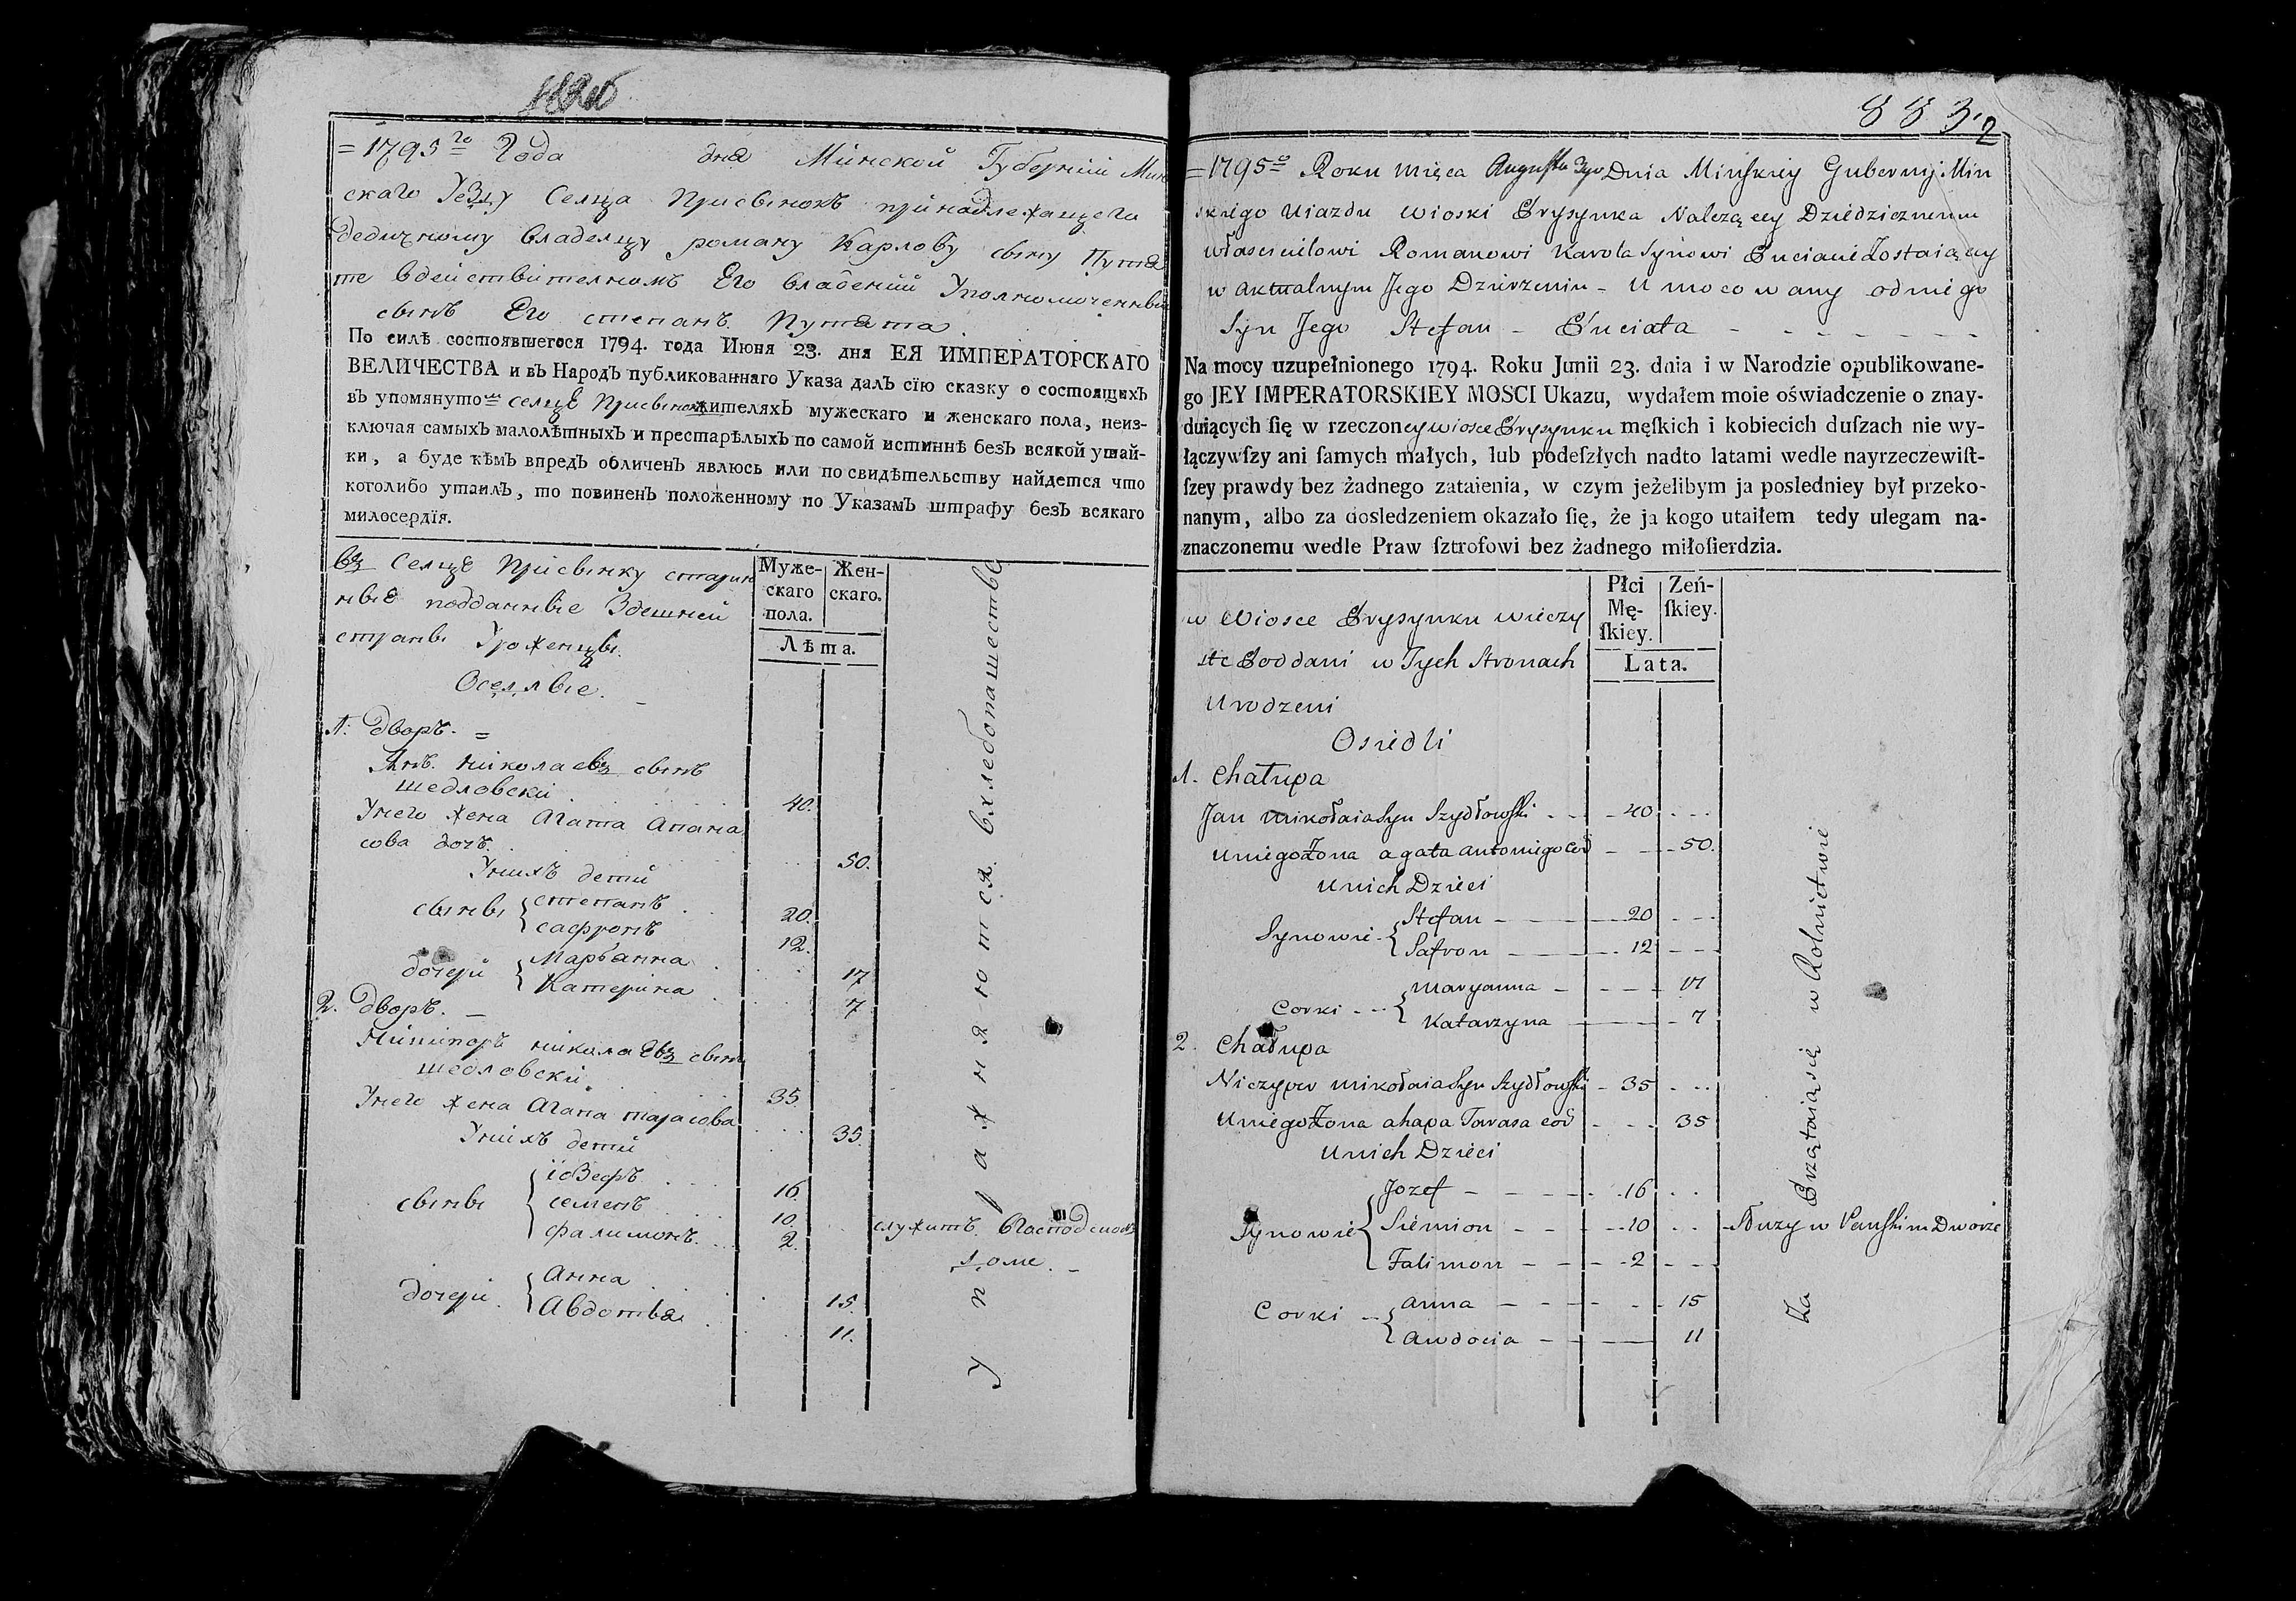 =1795го Года дня Минской Губернии Мин
скаго Уезду Селца Присынокъ принадлежащего
дедичному владелцу роману Карлову сыну Путя
те вдействителномъ Его владении Уполномоченный
сынъ Его степанъ Путята.
По силѣ состоявшегося 1794. года Июня 23. дня ЕЯ ИМПЕРАТОРСКАГО
ВЕЛИЧЕСТВА и въ Народъ публикованнаго Указа далъ сїю сказку о состоящихъ
въ упомянутомъ селце Присынокъ жителяхъ мужескаго и женскаго пола, неиз-
ключая самыхъ малолѣтныхъ и престарѣлыхъ по самой истиннѣ безъ всякой утай-
ки, а буде кѣмъ впредъ обличенъ явлюсь или по свидѣтельству найдется что
коголибо утаилъ, то повиненъ положенному по Указамъ штрафу безъ всякаго
милосердїя.
Въ Селце Присынку старин
ные подданные Здешней
страны Уроженцы.
Оселлые.
Муже-
скаго
пола.
Жен-
скаго.
Лѣта.
1. дворъ. =
Янъ николаевъ сынъ
шедловски 40.
Унего жена Агата Апана
сова дочь. 50.
Унихъ дети
сыны { степанъ 20.
сафронъ 12.
дочери { Марьанна 17
Катерина 7
2. дворъ. –
Ничипоръ николаевъ сынъ
шедловски. 35
Унего жена Агапа тарасова 35.
Унихъ дети
сыны { їоЗефъ 16.
семенъ 10. служитъ вгасподскомъ
доме. –
фалимонъ. 2.
дочери. { Анна 15.
Авдотьа 11.
Упажняются вхлебопашестве
8832
=1795o Roku Mięca Augusta 3go Dnia Minſkiey Gubernij Min
skiego Uiazdu Wioski Prysynka Należącey Dziedzicznemu
właścicielowi Romanowi Karola Synowi Puciacie Zostaiącey
w aktualnym Jego Dzierzeniu – Umocowany od niego
Syn Jego Stefan – Puciata – – – – – – –
Na mocy uzupełnionego 1794. Roku Junii 23. dnia i w Narodzie opublikowane-
go JEY IMPERATORSKIEY MOSCI Ukazu, wydałem moie oświadczenie o znay-
duiących ſię w rzeczoney wiosce Prysynku męſkich i kobiecich duſzach nie wy-
łączywſzy ani ſamych małych, lub podeſzłych nadto latami wedle nayrzeczewiſt-
ſzey prawdy bez żadnego zataienia, w czym jeżelibym ja posledniey był przeko-
nanym, albo za dosledzeniem okazało ſię, że ja kogo utaiłem tedy ulegam na-
znaczonemu wedle Praw ſztrofowi bez żadnego miłoſierdzia.
w Wiosce Prysynku wieczy
ste Poddani w Tych Stronach
Urodzeni
Osiedli
Płci
Mę-
ſkiey.
Zeń-
ſkiey.
Lata.
1. Chałupa
Jan Mikołaia Syn Szydłowſki – – 40 – – –
Uniego Zona agata antoniego Cor – – – 50.
Unich Dzieci
Synowie – { Stefan – – 20 – – –
Safron – – 12 – – –
Corki – – { Maryanna – – – – 17
Katarzyna – – 7
2. Chałupa
Niczypor Mikołaia Syn Szydłowſki – 35 – – –
Uniego Zona ahapa Tarasa cor – – – 35
Unich Dzieci
Synowie { Jozef – – – – 16 – –
Siemion – – – 10 – – – Służy w Panſkim Dworze
Falimon – – – 2 – – –
Corki – { anna – – – – – 15
awdocia – – – 11
Za Przątaia sie w Rolnictwie